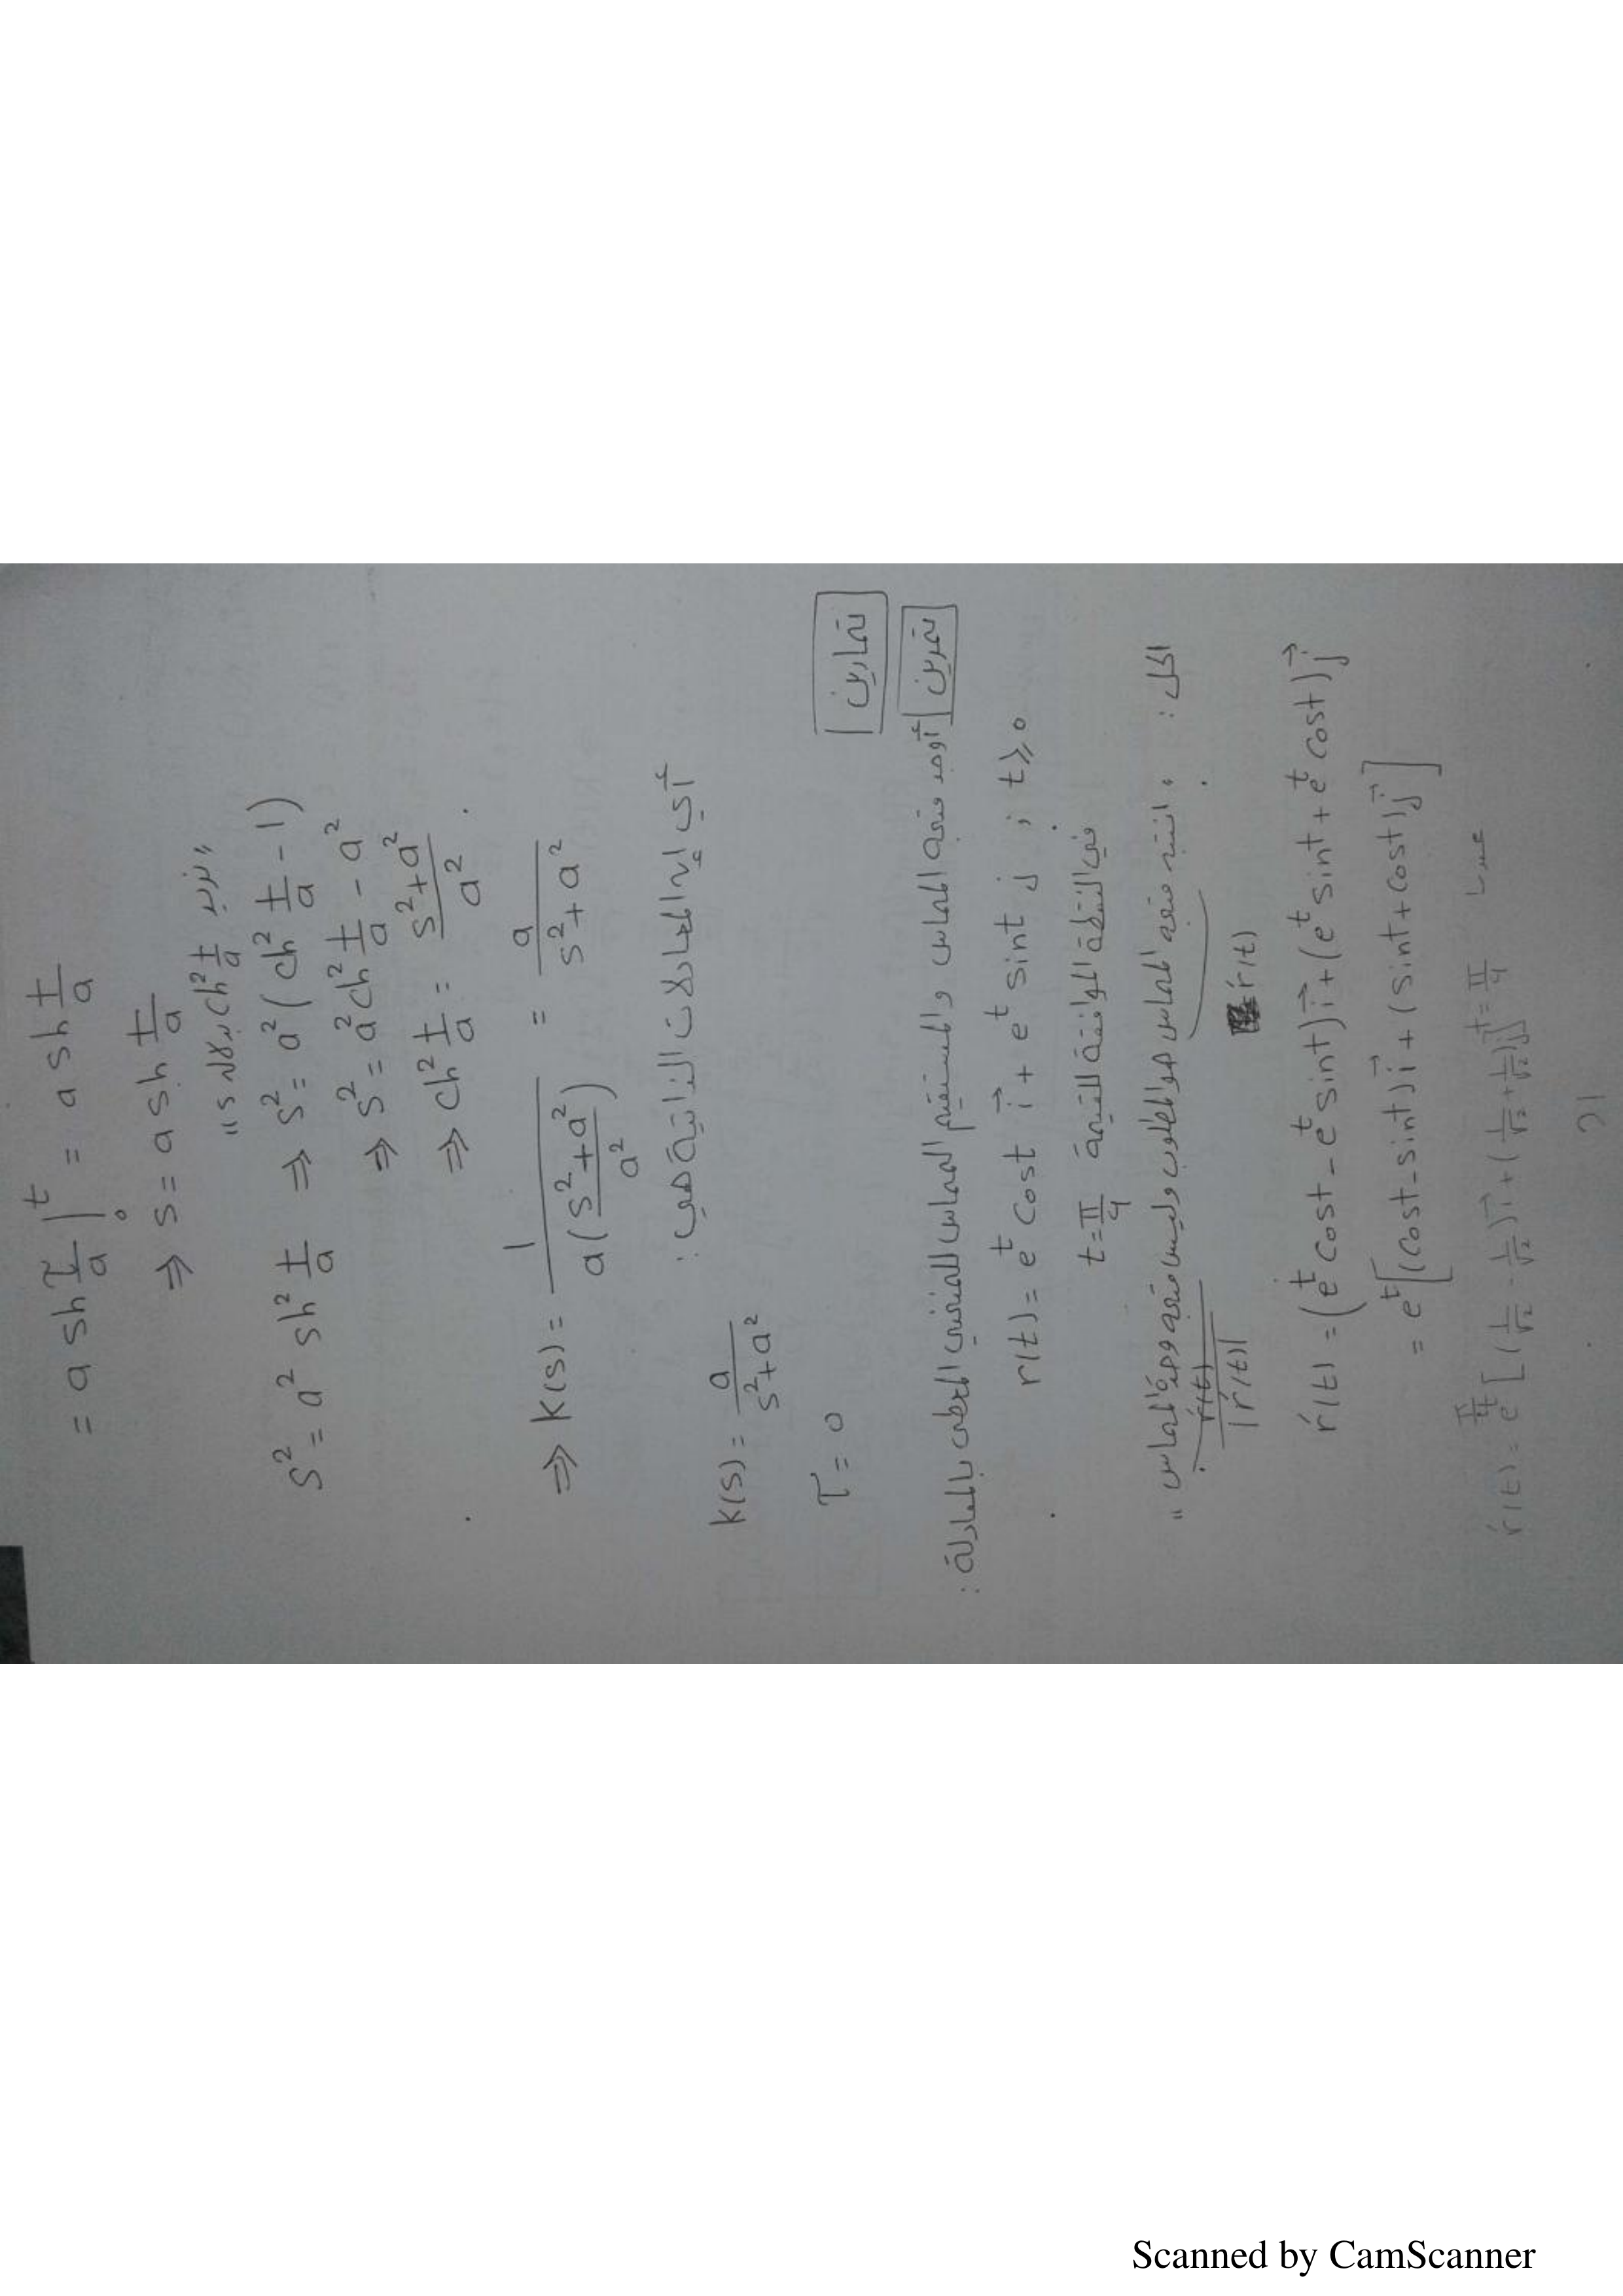 = a sh τ/a |₀ᵗ = a sh t/a
⇒ s = a sh t/a
"نريد ch² t/a بدلالة s"
s² = a² sh² t/a ⇒ s² = a² (ch² t/a - 1)
⇒ s² = a² ch² t/a - a²
⇒ ch² t/a = (s²+a²)/a²
⇒ k(s) = 1/(a((s²+a²)/a²)) = a/(s²+a²)
أي إن المعادلات الذاتية هي :
k(s) = a/(s²+a²)
τ = 0
تمارين
تمرين أوجد متجه المماس والمستقيم المماس للمنحني المعطى بالمعادلة :
r(t) = eᵗ cost i⃗ + eᵗ sint j ; t ⩾ 0
في النقطة الموافقة للقيمة t = π/4
الحل : " انتبه متجه المماس هو المطلوب وليس متجه وحدة المماس "
r′(t) r′(t)/|r′(t)|
r′(t) = (eᵗ cost - eᵗ sint) i⃗ + (eᵗ sint + eᵗ cost) j⃗
= eᵗ[(cost - sint) i⃗ + (sint + cost) j⃗]
r′(t) = e^(π/4) [(1/√2 - 1/√2) i⃗ + (1/√2 + 1/√2) j⃗] t = π/4 عندما
21
Scanned by CamScanner